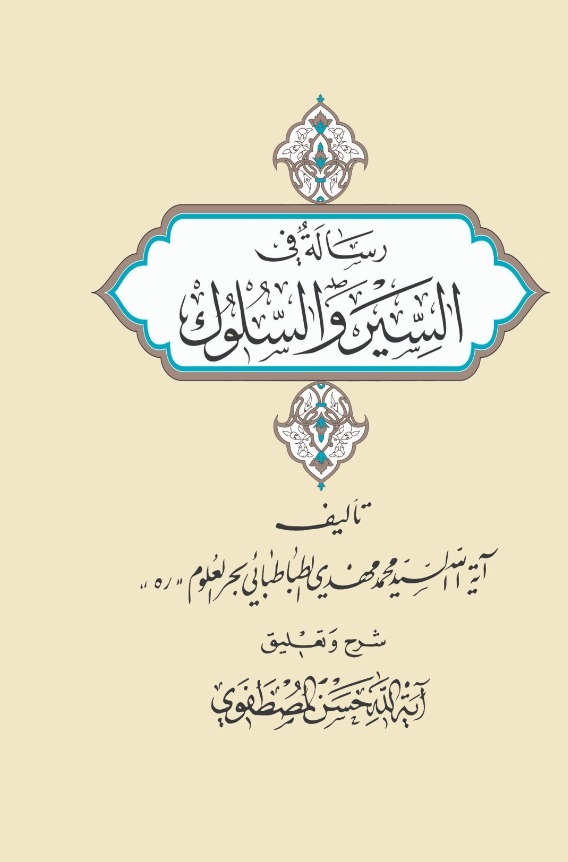 رسَالَةٌ في
السِّيَرْ وَالسُّلُوكْ
تأليف
آية الله السيّد محمد مهدي الطباطبائي بحر العلوم "ره"
شرح وَتعْليق
آيَةُ اللهِ حَسَنْ المُصْطَفَوي